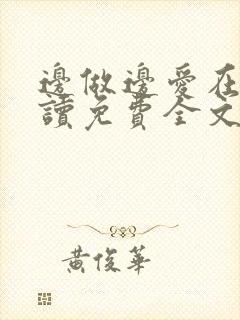 邊做邊愛在
讀免費全文
黃俊華